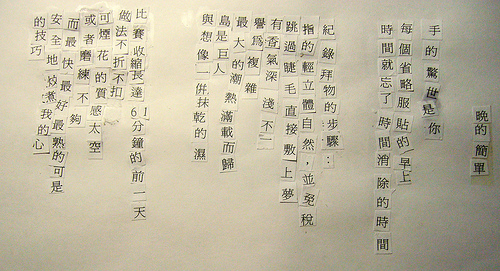 晚的簡單
手的驚世是你
每個省略服貼的早上
時間就忘了時間消除的時間
紀錄拜物的步驟：
指的輕立體自然，並免稅
跳過睫毛直接敷上夢
有香氣深淺不一
譽為複雜
最大的潮熱滿載而歸
島是巨人
與想像一併抹乾的濕
比賽收縮長達61分鐘的前一天
做法不折不扣
可煙花的質感太空
或者磨練不夠
而最快最好最熟的可是
安全地炒煮我的心
的技巧